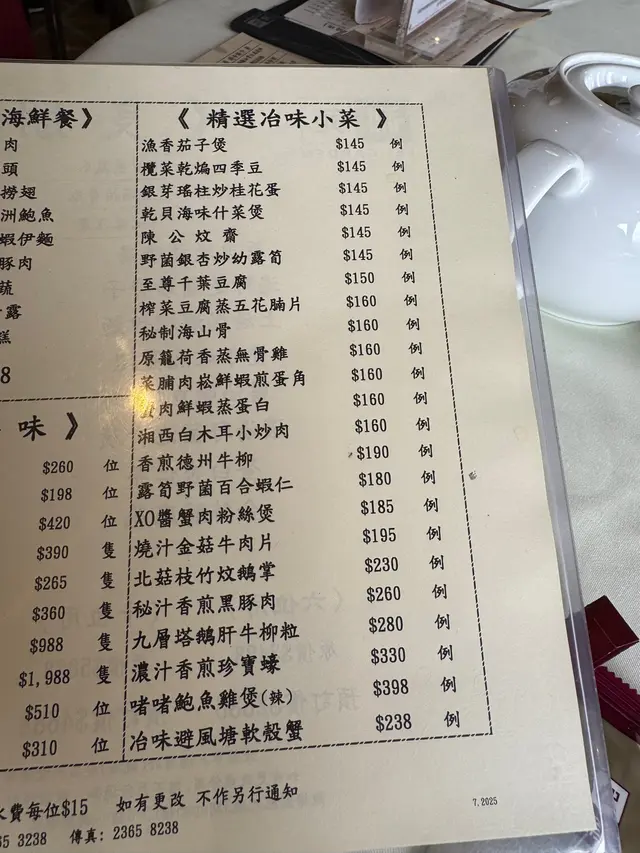 海鮮餐》
肉
頭
撈翅
洲鮑魚
蝦伊麵
豚肉
蔬
露
糕
8
味 》
$260 位
$198 位
$420 位
$390 隻
$265 隻
$360 隻
$988 隻
$1,988 隻
$510 位
$310 位
《 精選冶味小菜 》
漁香茄子煲 $145 例
欖菜乾煸四季豆 $145 例
銀芽瑤柱炒桂花蛋 $145 例
乾貝海味什菜煲 $145 例
陳公炆齋 $145 例
野菌銀杏炒幼露筍 $145 例
至尊千葉豆腐 $150 例
榨菜豆腐蒸五花腩片 $160 例
秘制海山骨 $160 例
原籠荷香蒸無骨雞 $160 例
菜脯肉崧鮮蝦煎蛋角 $160 例
肉鮮蝦蒸蛋白 $160 例
湘西白木耳小炒肉 $160 例
香煎德州牛柳 $190 例
露筍野菌百合蝦仁 $180 例
XO醬蟹肉粉絲煲 $185 例
燒汁金菇牛肉片 $195 例
北菇枝竹炆鵝掌 $230 例
秘汁香煎黑豚肉 $260 例
九層塔鵝肝牛柳粒 $280 例
濃汁香煎珍寶蠔 $330 例
啫啫鮑魚雞煲(辣) $398 例
冶味避風塘軟殼蟹 $238 例
水費每位$15 如有更改 不作另行通知
65 3238 傳真: 2365 8238
7.2025